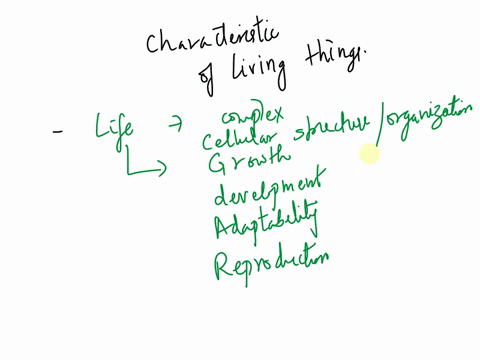 Characteristic
of living things.
- Life → complex
Cellular structure/organization
Growth
development
Adaptability
Reproduction